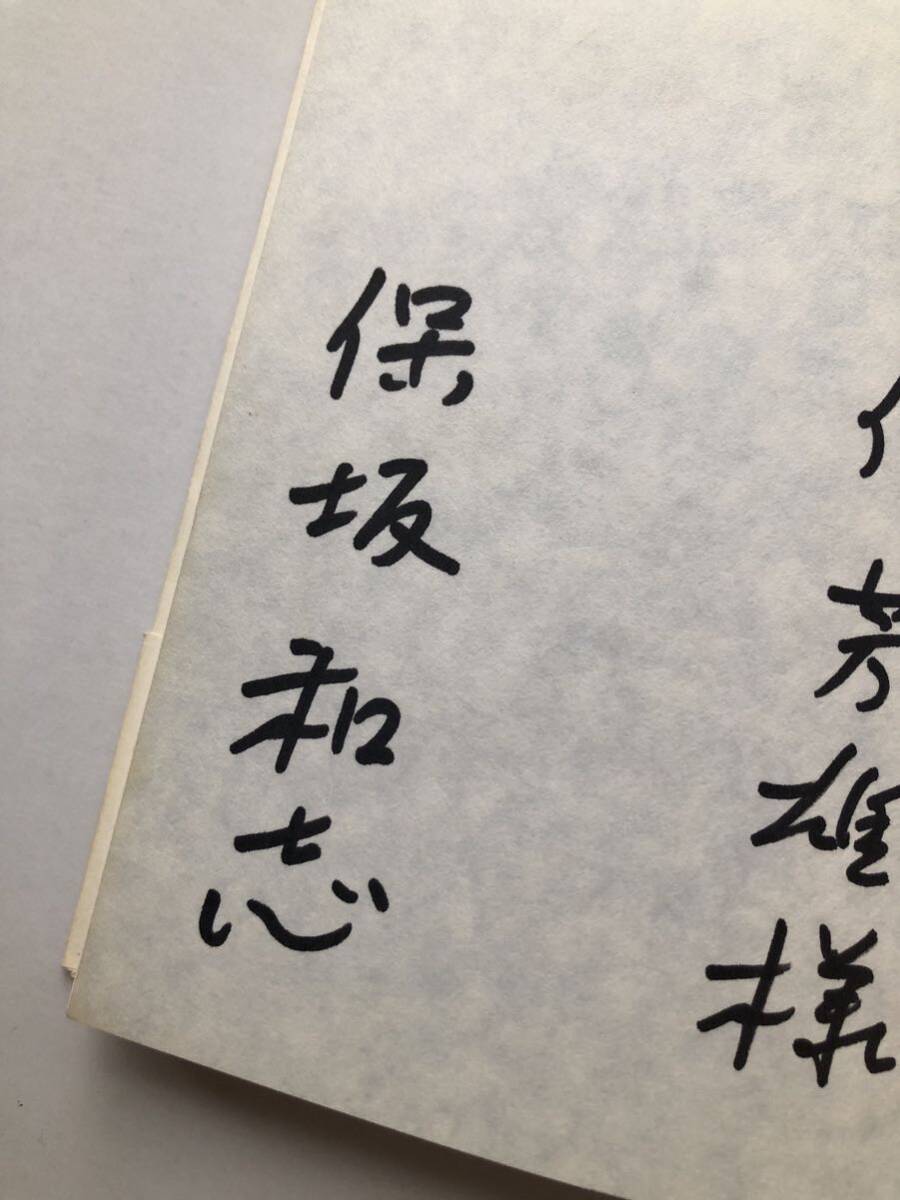 芳雄様
保坂和志